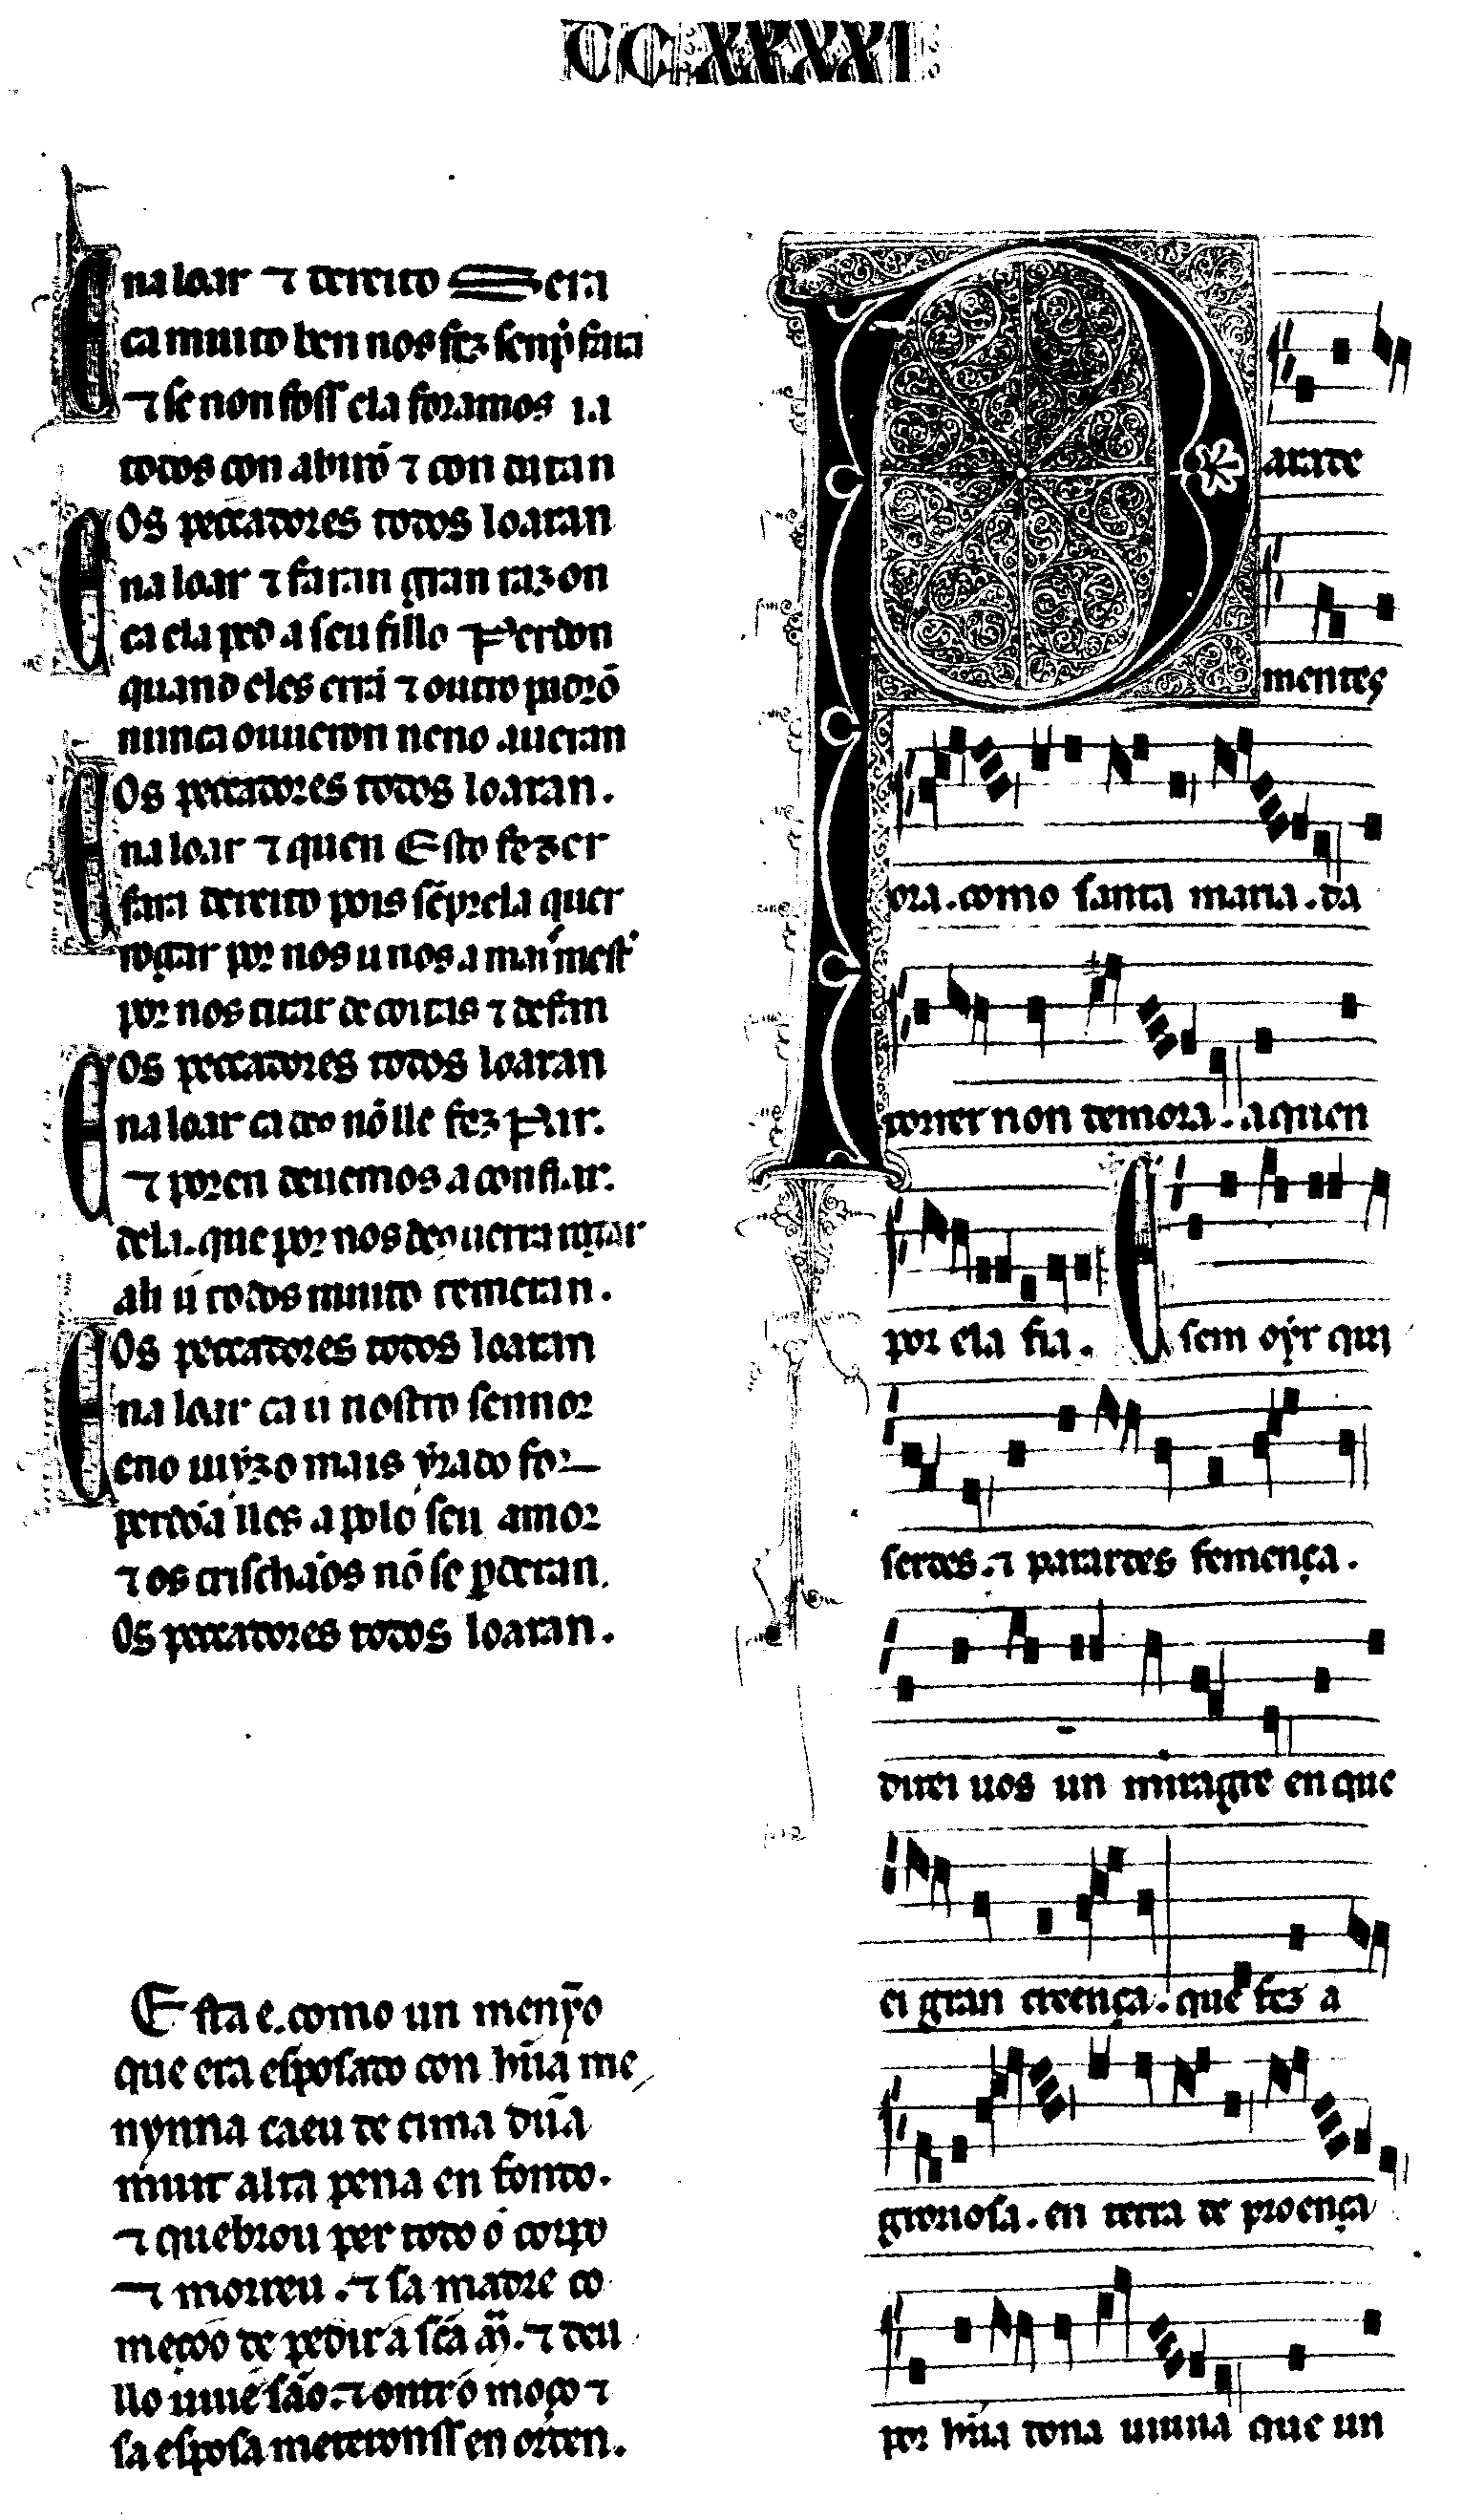 CCXXXXI
E na loar ⁊ dereito sera
ca muito ben nos fez semp̃ fara
⁊ se non foss ela foramos ia
todos con abirõ ⁊ con datan
Os peccadores todos loaran
E na loar ⁊ faran gran razon
ca ela ped a seu fillo Perdon
quand eles errã ⁊ outro padrõ
nunca ouueron neno aueran
Os peccadores todos loaran.
E na loar ⁊ quen Esto fezer
fara dereito pois sẽp̃ ela quer
rogar por nos u nos a mai mest̓
por nos tirar de coitas ⁊ defan
Os peccadores todos loaran
E na loar ca deo nõ lle fez Par.
⁊ por en deuemos a confiar.
dela. que por nos deo uerra iulgar
ali u todos muito temeran.
Os peccadores todos loaran
E na loar ca u nostro sennor
eno iuyzo mais yrado for
perdõalles a polo seu amor
⁊ os crischãos nõ se p̱deran.
Os peccadores todos loaran.
Esta e. como un menỹo
que era esposado con hũa me
nynna caeu de cima dũa
muit alta pena en fondo.
⁊ quebrou per todo o corpo
⁊ morreu. ⁊ sa madre co
meçoo de pedir a sc̃a m̃. ⁊ deu
llo uiue são. ⁊ ontr o moço ⁊
sa esposa meteronss en orden.
Parade
mentes
ora. como santa maria. da
correr non demora. a quen
por ela fia. E sem oyr qui
serdes. ⁊ parardes femença.
direi uos un miragre en que
ei gran creença. que fez a
groriosa. en terra de proença
por hũa dona uiuua que un